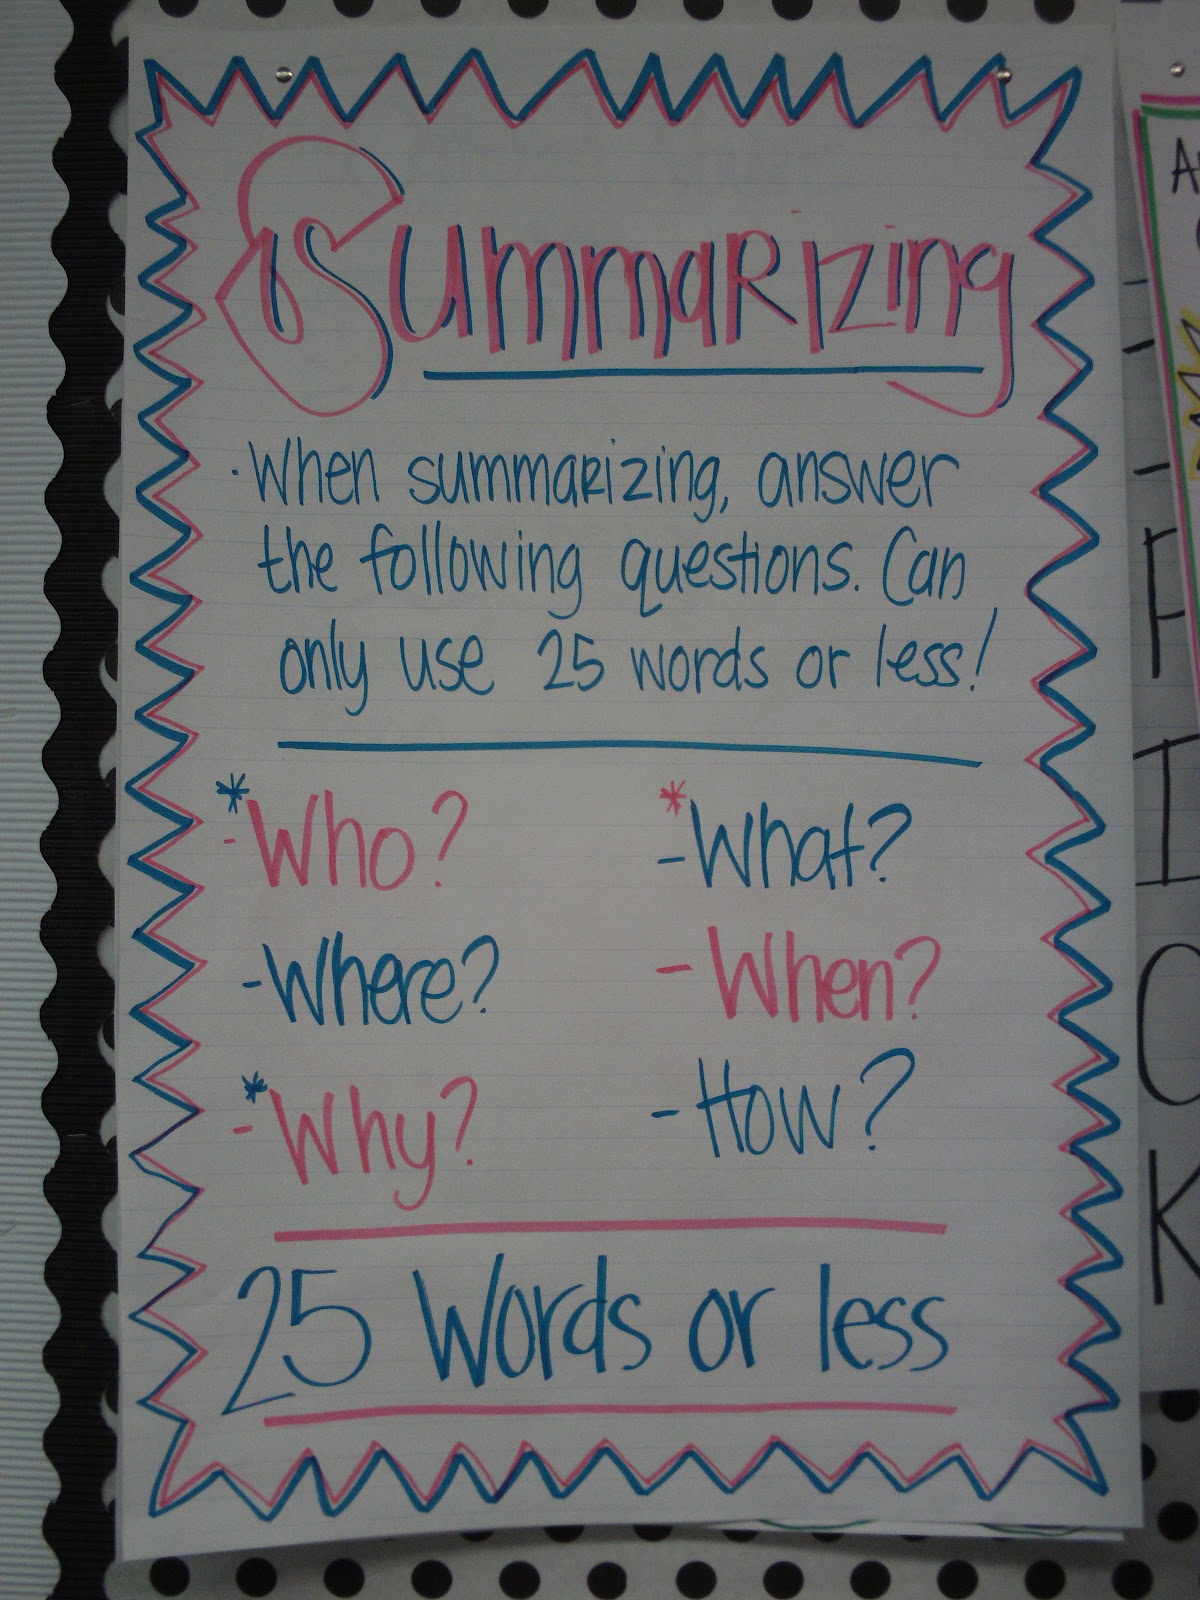 Summarizing
· When summarizing, answer
the following questions. Can
only use 25 words or less!
* -Who? * -What?
-Where? -When?
* -Why? -How?
25 Words or less
P
I
C
K